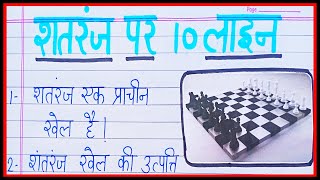 Page
शतरंज पर १० लाइन
1- शतरंज एक प्राचीन
खेल है।
2- शंतरंज खेल की उत्पत्ति